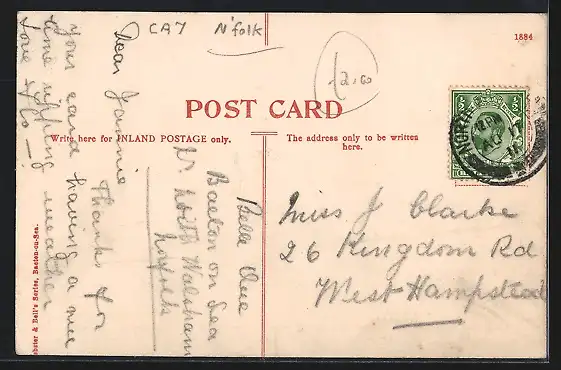 CA7 N'folk
12.00
1884
POST CARD
Write here for INLAND POSTAGE only.
The address only to be written
here.
Belle Vue
Bacton on Sea
Nr North Walsham
Norfolk
Dear Jannie
Thanks for
your card having a nice
time ripping weather
Love
Miss J Clarke
26 Kingdom Rd
West Hampstead
NORTH
& Bell's Series, Bacton-on-Sea.